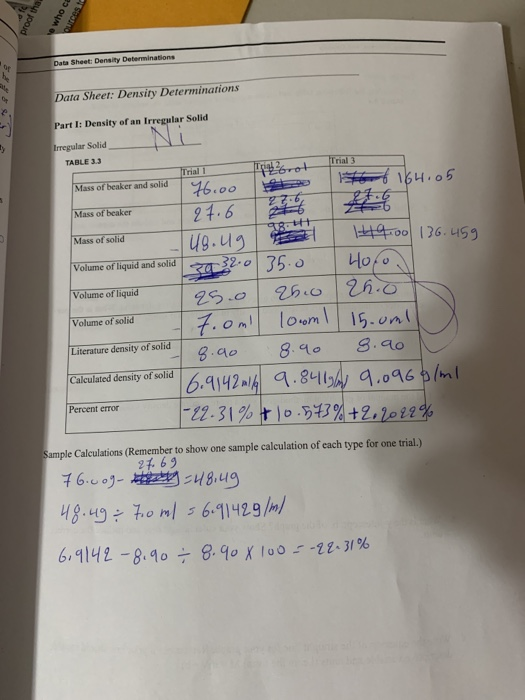 Data Sheet: Density Determinations
Data Sheet: Density Determinations
Part 1: Density of an Irregular Solid
Irregular Solid Ni
TABLE 3.3
Trial 1 Trial 2 Trial 3
Mass of beaker and solid 76.00 126.01 164.05
Mass of beaker 27.6 27.6 27.6
Mass of solid 48.4g 98.41 136.45g
Volume of liquid and solid 32.0 35.0 40.0
Volume of liquid 25.0 25.0 25.0
Volume of solid 7.0ml 10.0ml 15.0ml
Literature density of solid 8.90 8.90 8.90
Calculated density of solid 6.9142 9.841g/ml 9.096g/ml
Percent error -22.31% +10.573% +2.2022%
Sample Calculations (Remember to show one sample calculation of each type for one trial.)
27.6g
76.00g- =48.4g
48.4g ÷ 7.0ml = 6.9142g/ml
6.9142 -8.90 ÷ 8.90 X 100 = -22.31%